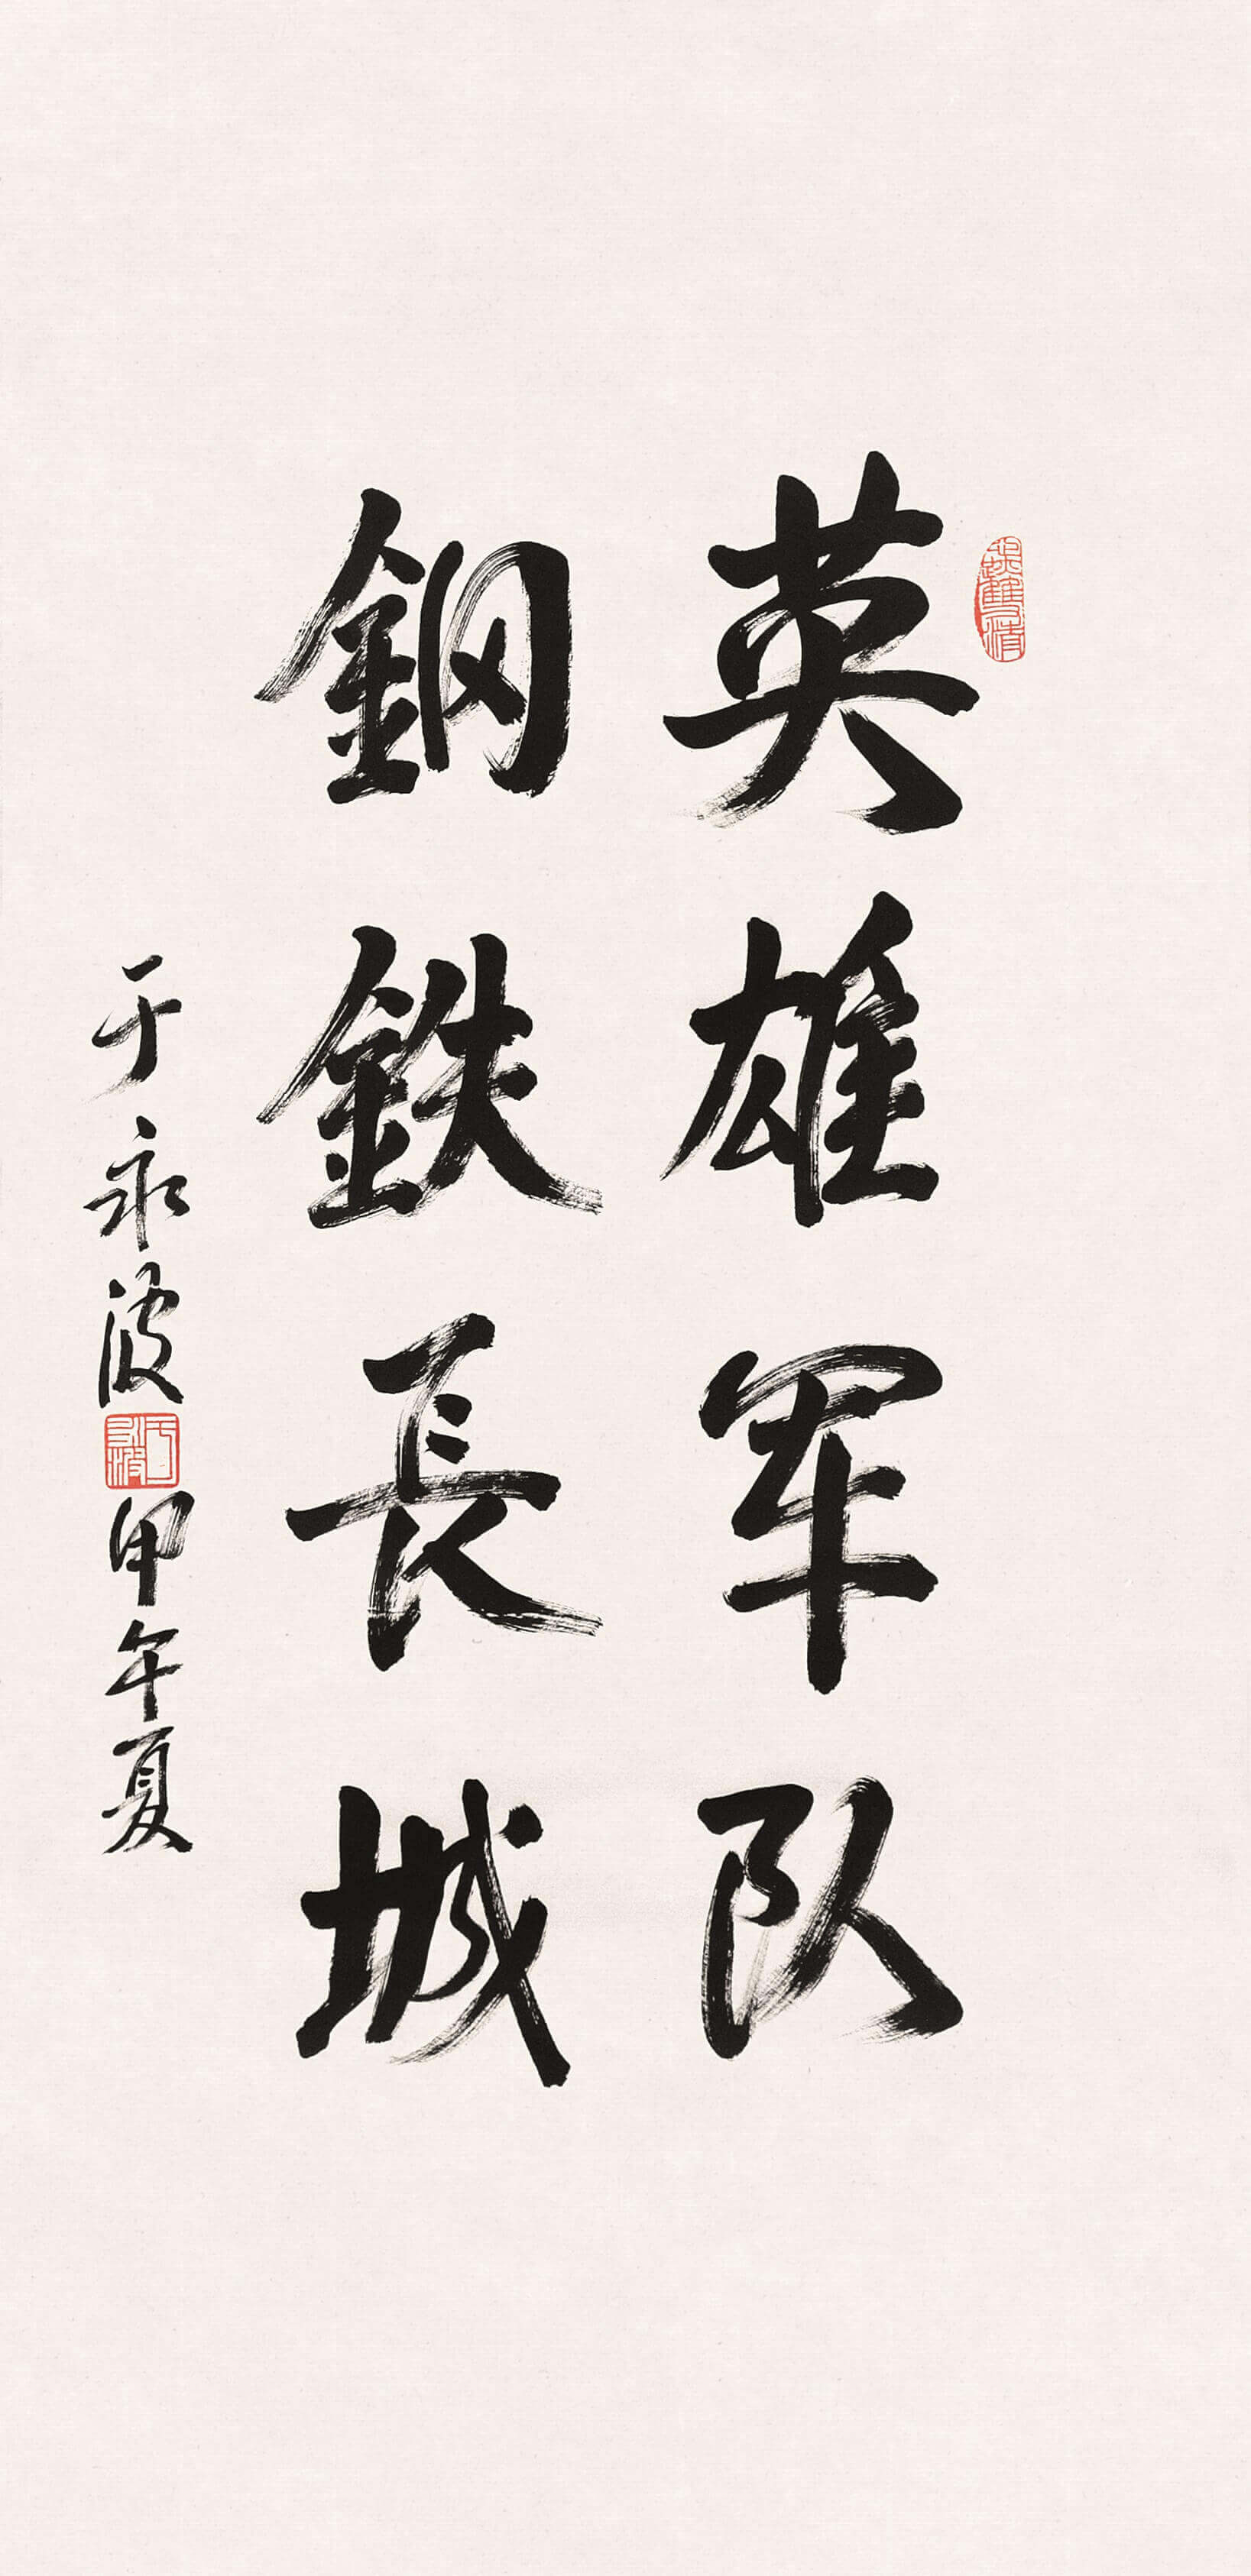 英雄军队
鋼鉄長城
于永波
甲午夏